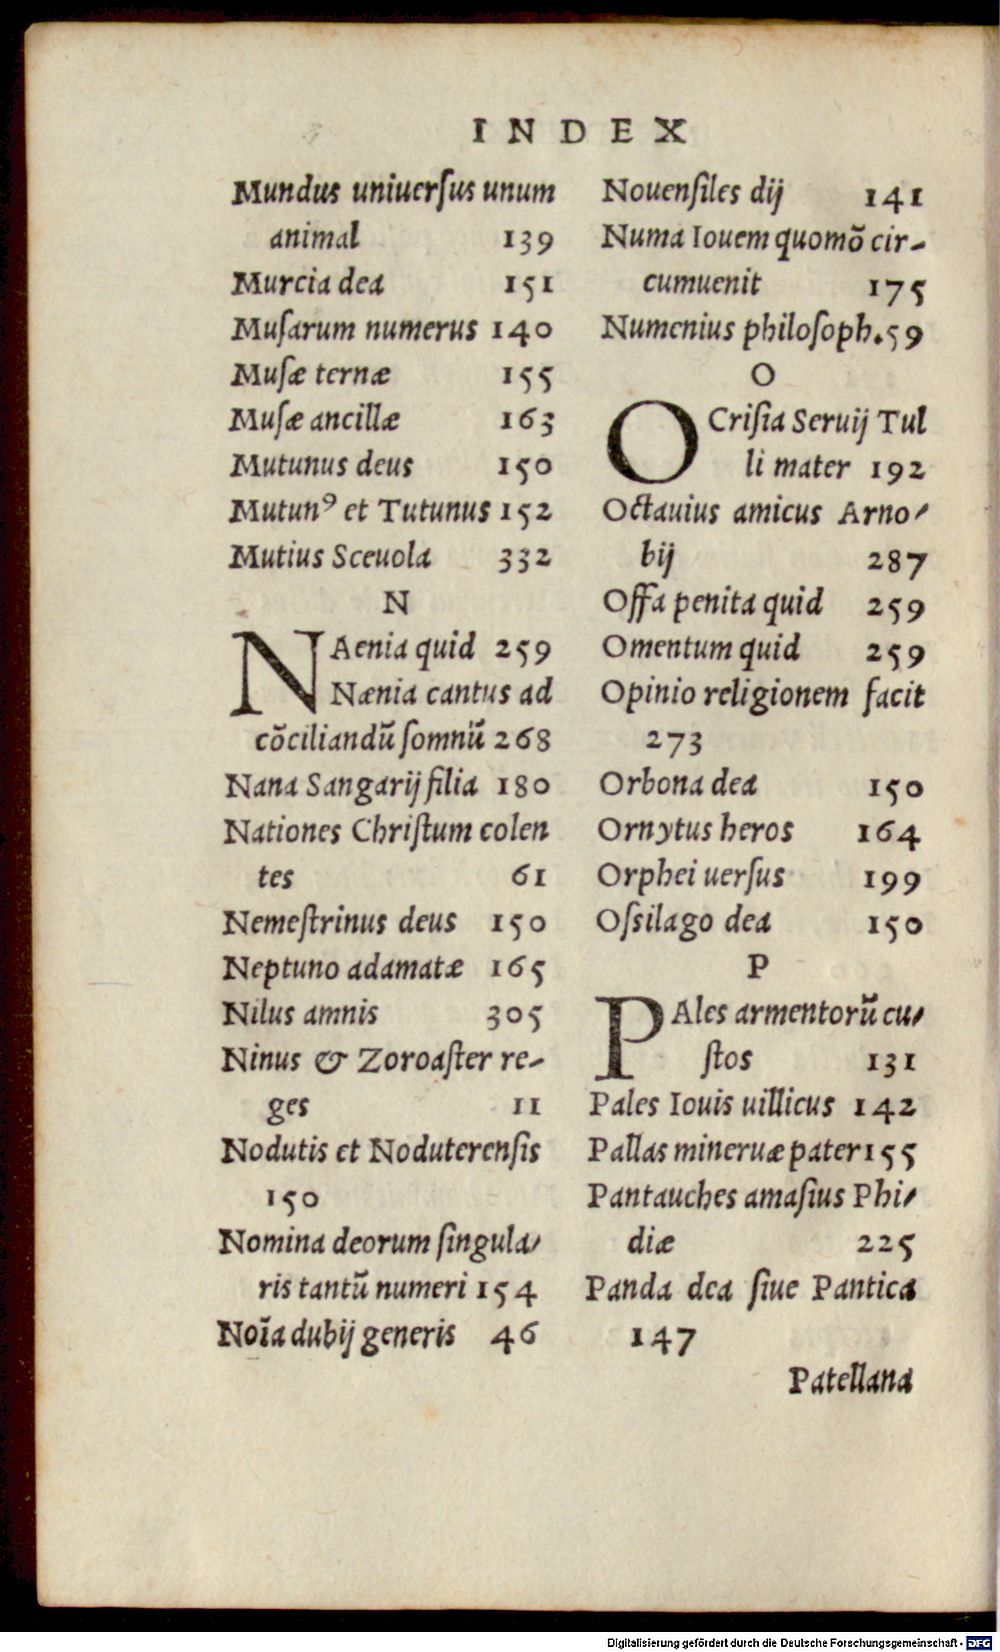 INDEX
Mundus uniuerſus unum
animal 139
Murcia dea 151
Muſarum numerus 140
Muſæ ternæ 155
Muſæ ancillæ 163
Mutunus deus 150
Mutunꝰ et Tutunus 152
Mutius Sceuola 332
N
NAenia quid 259
Nænia cantus ad
cõciliandũ ſomnũ 268
Nana Sangarij filia 180
Nationes Chriſtum colen
tes 61
Nemeſtrinus deus 150
Neptuno adamatæ 165
Nilus amnis 305
Ninus & Zoroaſter re-
ges 11
Nodutis et Noduterenſis
150
Nomina deorum ſingula/
ris tantũ numeri 154
Noĩa dubij generis 46
Nouenſiles dij 141
Numa Iouem quomõ cir-
cumuenit 175
Numenius philoſoph. 59
O
OCriſia Seruij Tul
li mater 192
Octauius amicus Arno/
bij 287
Offa penita quid 259
Omentum quid 259
Opinio religionem facit
273
Orbona dea 150
Ornytus heros 164
Orphei uerſus 199
Oſsilago dea 150
P
PAles armentorũ cu/
ſtos 131
Pales Iouis uillicus 142
Pallas mineruæ pater 155
Pantauches amaſius Phi/
diæ 225
Panda dea ſiue Pantica
147
Patellana
Digitalisierung gefördert durch die Deutsche Forschungsgemeinschaft - DFG